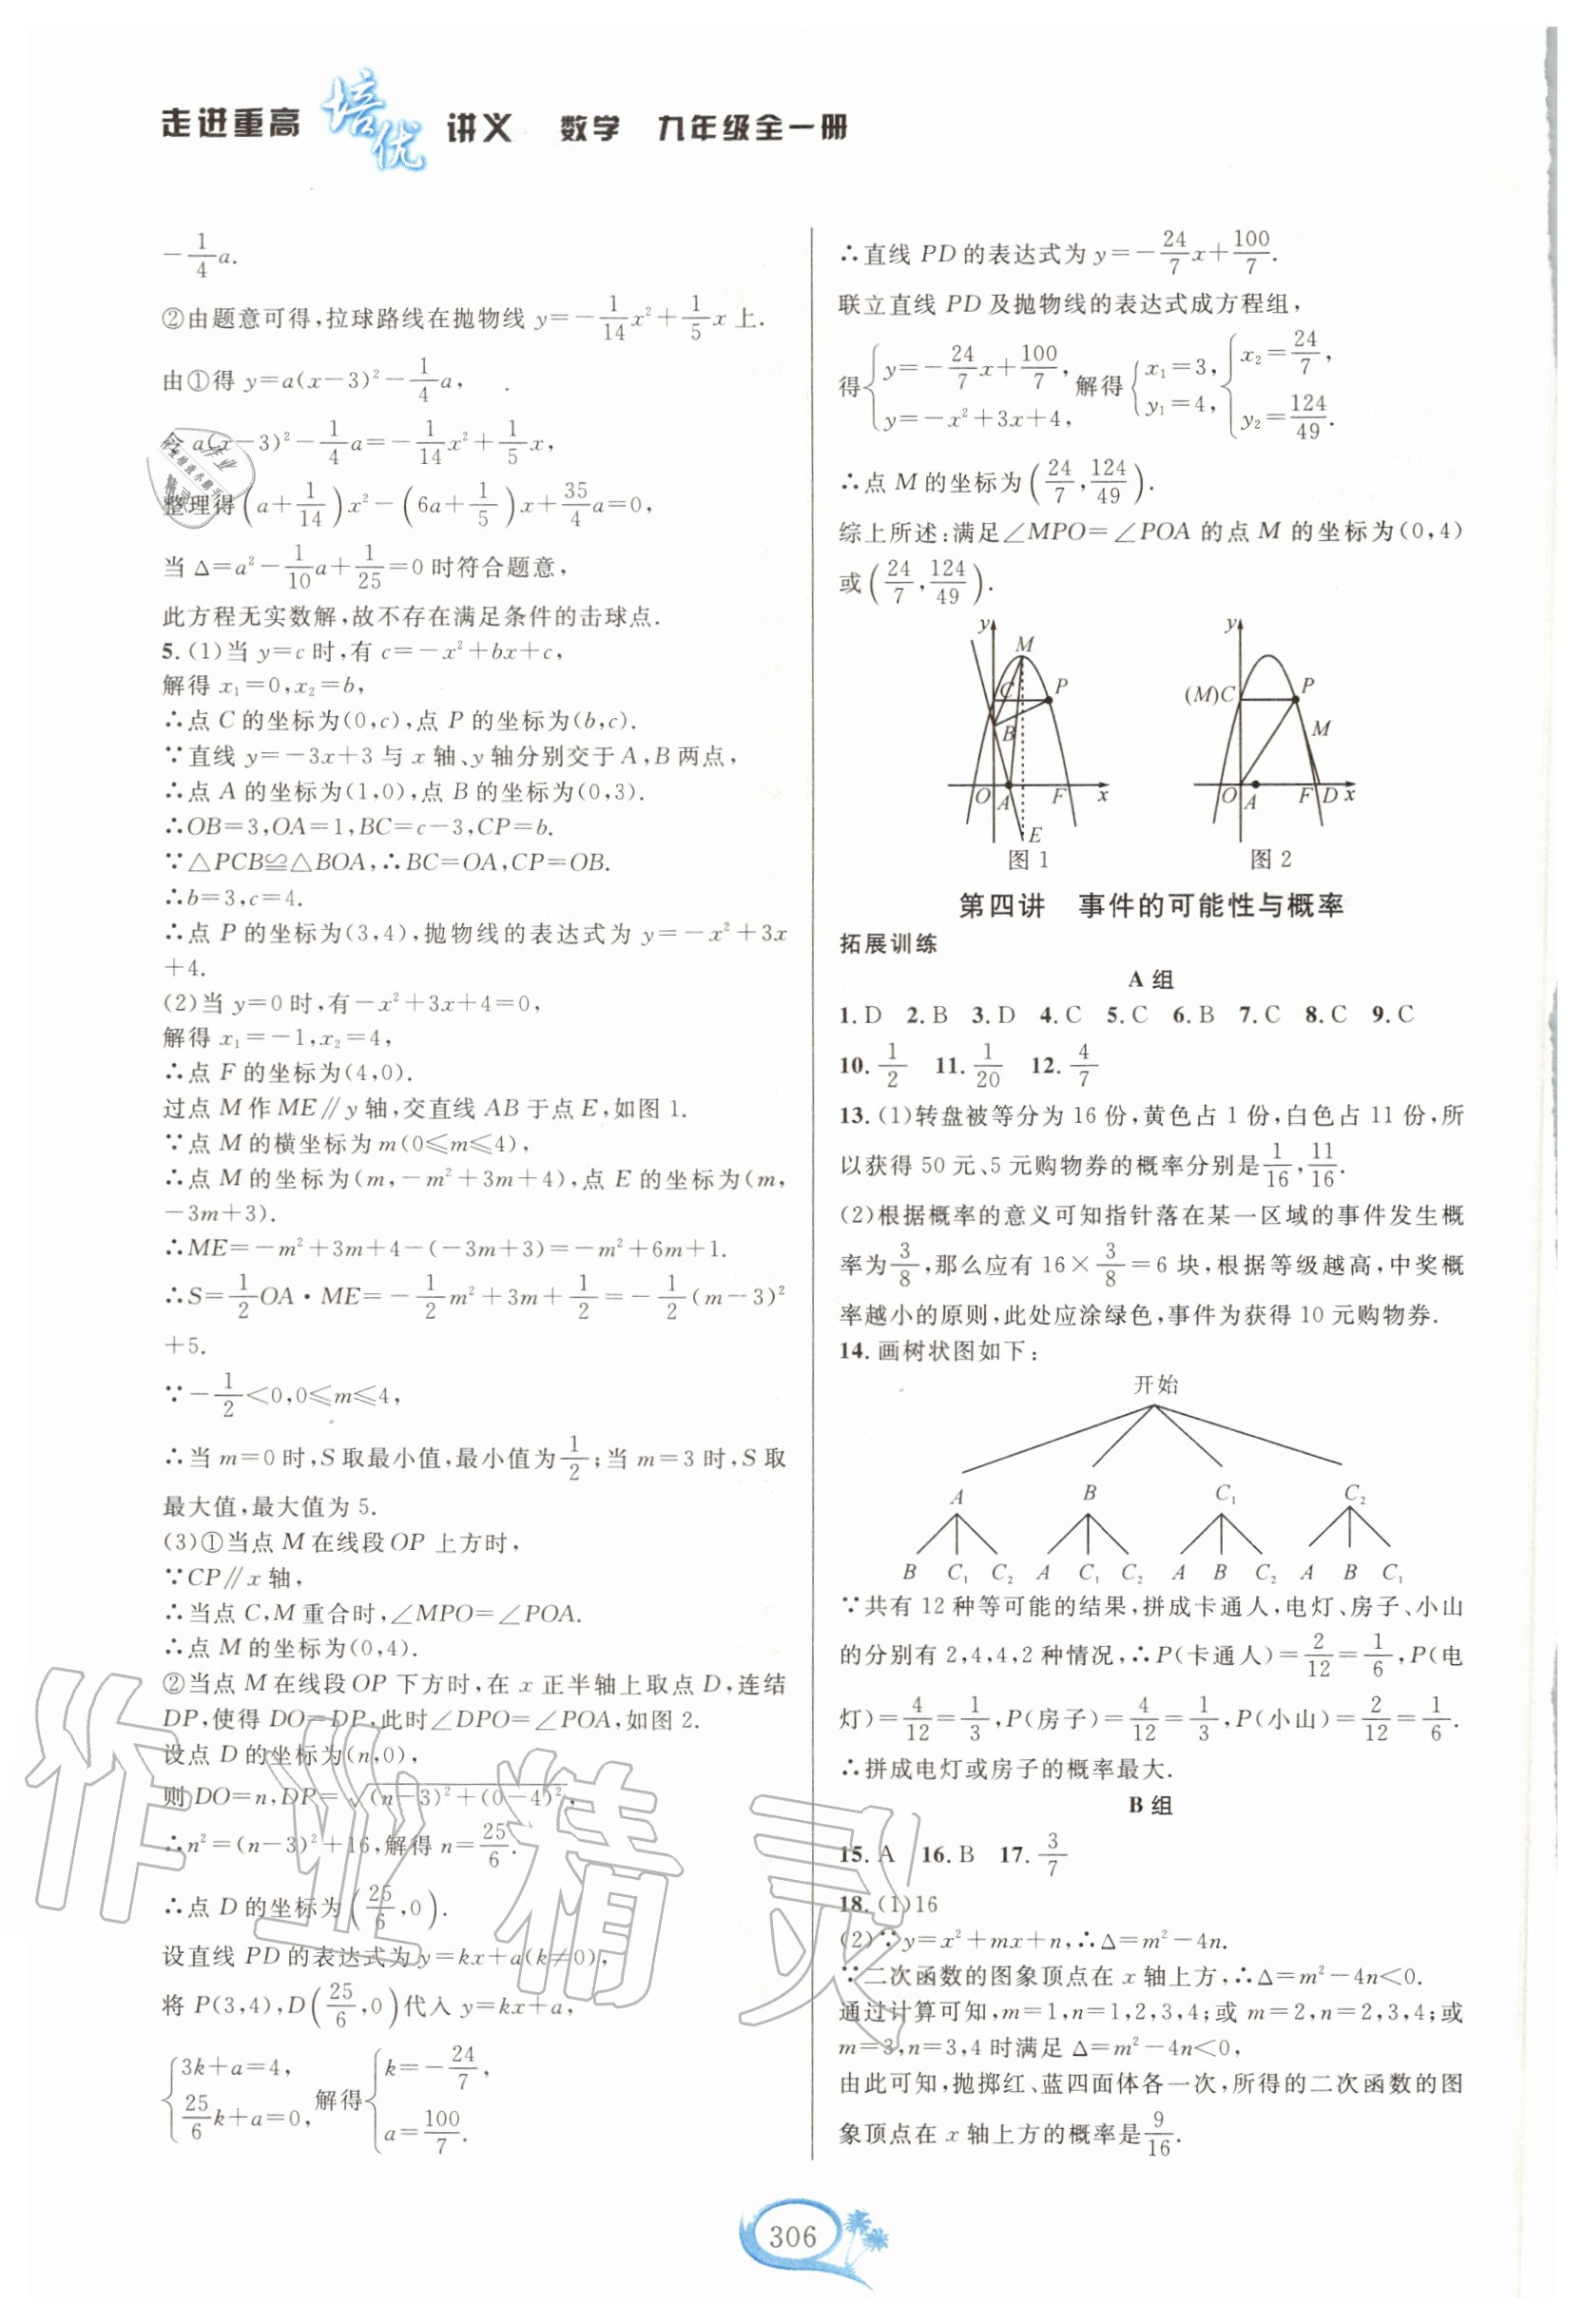 走进重高 培优 讲义 数学 九年级全一册
-\frac{1}{4}a.
②由题意可得,拉球路线在抛物线 y=-\frac{1}{14}x²+\frac{1}{5}x 上.
由①得 y=a(x-3)²-\frac{1}{4}a,
令 a(x-3)²-\frac{1}{4}a=-\frac{1}{14}x²+\frac{1}{5}x,
整理得(a+\frac{1}{14})x²-(6a+\frac{1}{5})x+\frac{35}{4}a=0,
当 Δ=a²-\frac{1}{10}a+\frac{1}{25}=0时符合题意,
此方程无实数解,故不存在满足条件的击球点.
5.(1)当 y=c 时,有 c=-x²+bx+c,
解得 x₁=0,x₂=b,
∴点 C 的坐标为(0,c),点 P 的坐标为(b,c).
∵直线 y=-3x+3 与 x 轴、y轴分别交于 A,B 两点,
∴点 A 的坐标为(1,0),点 B 的坐标为(0,3).
∴OB=3,OA=1,BC=c-3,CP=b.
∵△PCB≌△BOA,∴BC=OA,CP=OB.
∴b=3,c=4.
∴点 P 的坐标为(3,4),抛物线的表达式为 y=-x²+3x
+4.
(2)当 y=0时,有-x²+3x+4=0,
解得 x₁=-1,x₂=4,
∴点 F 的坐标为(4,0).
过点 M 作 ME∥y 轴,交直线 AB 于点 E,如图 1.
∵点 M 的横坐标为 m(0≤m≤4),
∴点 M 的坐标为(m,-m²+3m+4),点 E 的坐标为(m,
-3m+3).
∴ME=-m²+3m+4-(-3m+3)=-m²+6m+1.
∴S=\frac{1}{2}OA·ME=-\frac{1}{2}m²+3m+\frac{1}{2}=-\frac{1}{2}(m-3)²
+5.
∵-\frac{1}{2}<0,0≤m≤4,
∴当 m=0时,S 取最小值,最小值为\frac{1}{2};当 m=3 时,S 取
最大值,最大值为 5.
(3)①当点 M 在线段 OP 上方时,
∵CP∥x 轴,
∴当点 C,M 重合时,∠MPO=∠POA.
∴点 M 的坐标为(0,4).
②当点 M 在线段 OP 下方时,在 x 正半轴上取点 D,连结
DP,使得 DO=DP,此时∠DPO=∠POA,如图 2.
设点 D 的坐标为(n,0),
则 DO=n,DP=\sqrt{(n-3)²+(0-4)²},
∴n²=(n-3)²+16,解得 n=\frac{25}{6}.
∴点 D 的坐标为(\frac{25}{6},0).
设直线 PD 的表达式为 y=kx+a(k≠0),
将 P(3,4),D(\frac{25}{6},0)代入 y=kx+a,
{3k+a=4, \frac{25}{6}k+a=0, 解得{k=-\frac{24}{7}, a=\frac{100}{7}.
∴直线 PD 的表达式为 y=-\frac{24}{7}x+\frac{100}{7}.
联立直线 PD 及抛物线的表达式成方程组,
得{y=-\frac{24}{7}x+\frac{100}{7}, y=-x²+3x+4, 解得{x₁=3, y₁=4, {x₂=\frac{24}{7}, y₂=\frac{124}{49}.
∴点 M 的坐标为(\frac{24}{7},\frac{124}{49}).
综上所述:满足∠MPO=∠POA 的点 M 的坐标为(0,4)
或(\frac{24}{7},\frac{124}{49}).
y M C P B O A F x E
图 1
y (M)C P M O A F D x
图 2
第四讲 事件的可能性与概率
拓展训练
A 组
1. D 2. B 3. D 4. C 5. C 6. B 7. C 8. C 9. C
10. \frac{1}{2} 11. \frac{1}{20} 12. \frac{4}{7}
13.(1)转盘被等分为 16 份,黄色占 1 份,白色占 11 份,所
以获得 50 元、5 元购物券的概率分别是\frac{1}{16},\frac{11}{16}.
(2)根据概率的意义可知指针落在某一区域的事件发生概
率为\frac{3}{8},那么应有 16×\frac{3}{8}=6 块,根据等级越高,中奖概
率越小的原则,此处应涂绿色,事件为获得 10 元购物券.
14. 画树状图如下:
开始
A B C₁ C₂
B C₁ C₂ A C₁ C₂ A B C₂ A B C₁
∵共有 12 种等可能的结果,拼成卡通人,电灯、房子、小山
的分别有 2,4,4,2 种情况,∴P(卡通人)=\frac{2}{12}=\frac{1}{6},P(电
灯)=\frac{4}{12}=\frac{1}{3},P(房子)=\frac{4}{12}=\frac{1}{3},P(小山)=\frac{2}{12}=\frac{1}{6}.
∴拼成电灯或房子的概率最大.
B 组
15. A 16. B 17. \frac{3}{7}
18.(1)16
(2)∵y=x²+mx+n,∴Δ=m²-4n.
∵二次函数的图象顶点在 x 轴上方,∴Δ=m²-4n<0.
通过计算可知,m=1,n=1,2,3,4;或 m=2,n=2,3,4;或
m=3,n=3,4 时满足 Δ=m²-4n<0,
由此可知,抛掷红、蓝四面体各一次,所得的二次函数的图
象顶点在 x 轴上方的概率是\frac{9}{16}.
作业精灵
306